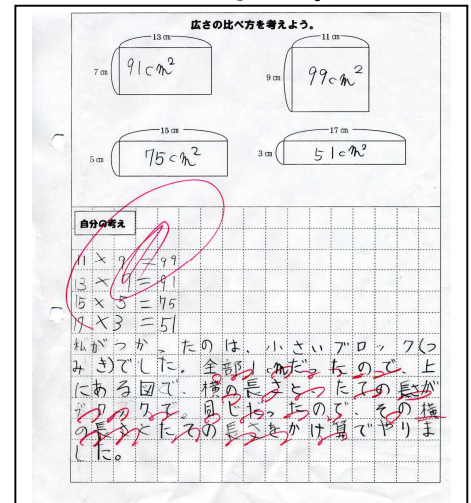 広さの比べ方を考えよう。
13 cm
11 cm
7 cm
91cm²
9 cm
99cm²
15 cm
17 cm
5 cm
75cm²
3 cm
51cm²
自分の考え
11 × 9 = 99
13 × 7 = 91
15 × 5 = 75
17 × 3 = 51
私がつかったのは、小さいブロック(つ
みき)でした。全部1cmだったので、上
にある図で、横の長さとたての長さが
ブロックで。同じだったので、その横
の長さとたての長さをかけ算でやりま
した。